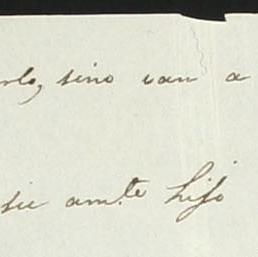 rlo, sino van a
su am.te hijo